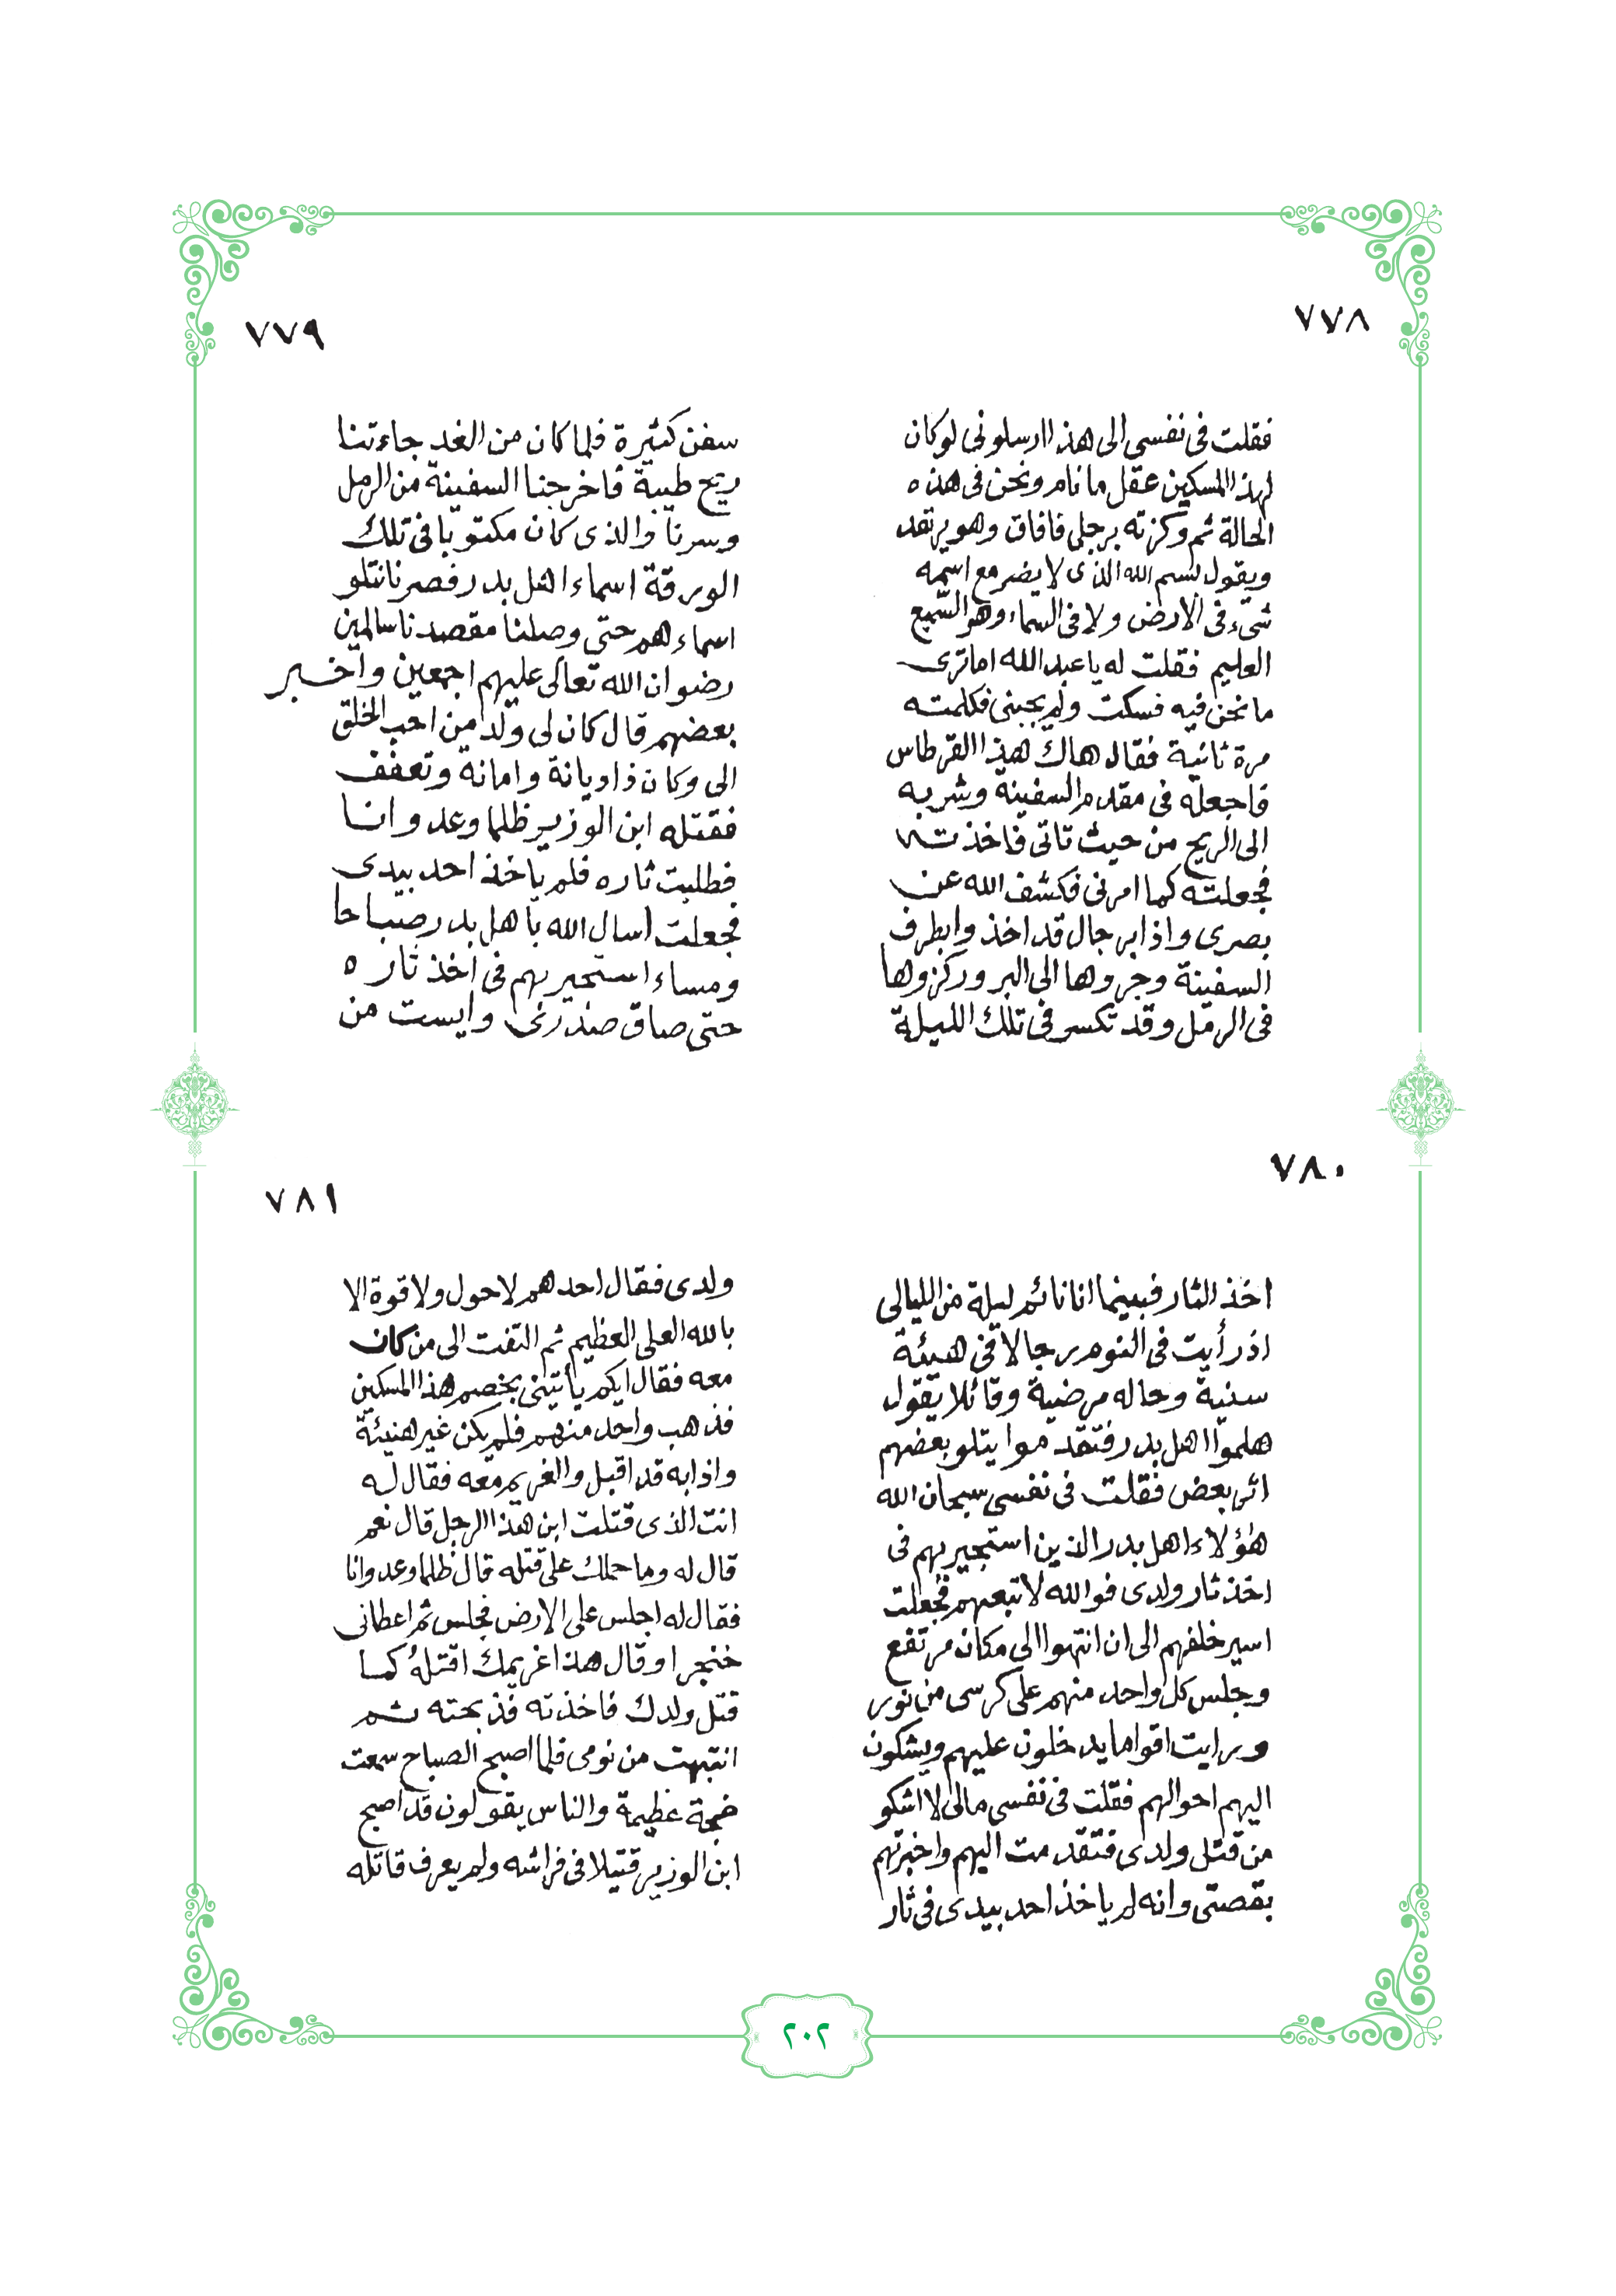 ٧٧٨
فقلت فى نفسى الى هذا ارسلونى لو كان
لهذا المسكين عقل ما نام ونحن فى هذه
الحالة ثم وكزته برجلى فافاق وهو يرتعد
ويقول بسم الله الذى لا يضر مع اسمه
شىء فى الارض ولا فى السماء وهو السميع
العليم فقلت له يا عبد الله اما ترى
ما نحن فيه فسكت ولم يجبنى فكلمته
مرة ثانية فقال هاك هذا القرطاس
فاجعله فى مقدم السفينة وشر به
الى الريح من حيث تاتى فاخذته
فجعلته كما امرنى فكشف الله عن
بصرى واذا برجال قد اخذوا بطرف
السفينة وجروها الى البر وركزوها
فى الرمل وقد تكسر فى تلك الليلة
٧٧٩
سفن كثيرة فلما كان من الغد جاءتنا
ريح طيبة فاخرجنا السفينة من الرمل
وسرنا والذى كان مكتوبا فى تلك
الورقة اسماء اهل بدر فصرنا نتلو
اسماءهم حتى وصلنا مقصدنا سالمين
رضوان الله تعالى عليهم اجمعين واخبر
بعضهم قال كان لى ولد من احب الخلق
الى وكان ذا ديانة وامانة وتعفف
فقتله ابن الوزير ظلما وعدوانا
فطلبت ثاره فلم ياخذ احد بيدى
فجعلت اسال الله باهل بدر صباحا
ومساء استجير بهم فى اخذ ثاره
حتى ضاق صدرى وايست من
٧٨٠
اخذ الثار فبينما انا نائم ليلة من الليالى
اذ رأيت فى النوم رجالا فى هيئة
سنية وحاله مرضية وقائلا يقول
هلموا اهل بدر فتقدموا يتلو بعضهم
اثر بعض فقلت فى نفسى سبحان الله
هؤلاء اهل بدر الذين استجير بهم فى
اخذ ثار ولدى فوالله لاتبعهم فجعلت
اسير خلفهم الى ان انتهوا الى مكان مرتفع
وجلس كل واحد منهم على كرسى من نور
ورايت اقواما يدخلون عليهم ويشكون
اليهم احوالهم فقلت فى نفسى مالى لا اشكو
من قتل ولدى فتقدمت اليهم واخبرتهم
بقصتى وانه لم ياخذ احد بيدى فى ثار
٧٨١
ولدى فقال احدهم لا حول ولا قوة الا
بالله العلى العظيم ثم التفت الى من كان
معه فقال ايكم يأتينى بخصم هذا المسكين
فذهب واحد منهم فلم يكن غير هنيئة
واذا به قد اقبل والغريم معه فقال له
انت الذى قتلت ابن هذا الرجل قال نعم
قال له وما حملك على قتله قال ظلما وعدوانا
فقال له اجلس على الارض فجلس ثم اعطانى
خنجرا وقال هذا غريمك اقتله كما
قتل ولدك فاخذته فذبحته ثم
انتبهت من نومى فلما اصبح الصباح سمعت
ضجة عظيمة والناس يقولون قد اصبح
ابن الوزير قتيلا فى فراشه ولم يعرف قاتله
٢٠٢